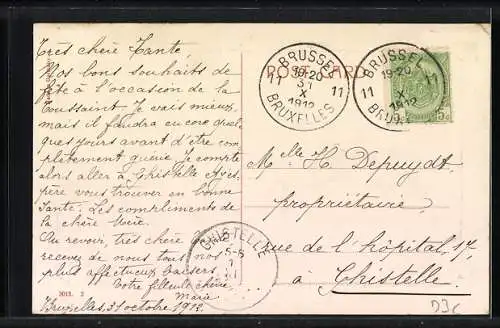 Très chère Tante,
Nos bons souhaits de
fête à l'occasion de la
Toussaint. Je vais mieux,
mais il faudra encore quel-
ques jours avant d'être com-
plètement guérie. Je compte
alors aller à Ghistelle et es-
père vous trouver en bonne
santé. Les compliments de
la chère Mère.
Au revoir, très chère
recevez de nous tous nos
plus affectueux baisers
Votre filleule chérie
Marie
Bruxelles, 31 octobre 1912.
3013. 2
POST CARD
BRUSSEL
19-20
11 31 11
X
1912
BRUXELLES
BRUSSEL
19-20
11 11
X
1912
5c
Melle H. Depuydt.
propriétaire,
rue de l'hôpital, 17,
à Ghistelle
GHISTELLE
D3c